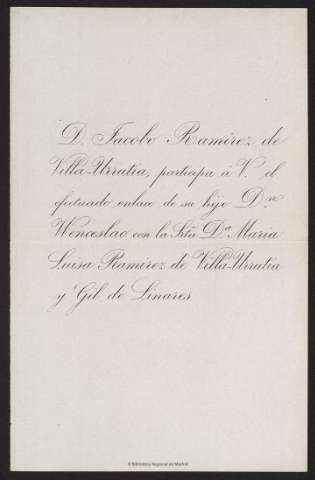 D. Jacobo Ramírez de
Villa-Urrutia, participa á V. el
efectuado enlace de su hijo D.n
Wenceslao con la Srta. D.a María
Luisa Ramírez de Villa-Urrutia
y Gil de Linares
© Biblioteca Regional de Madrid